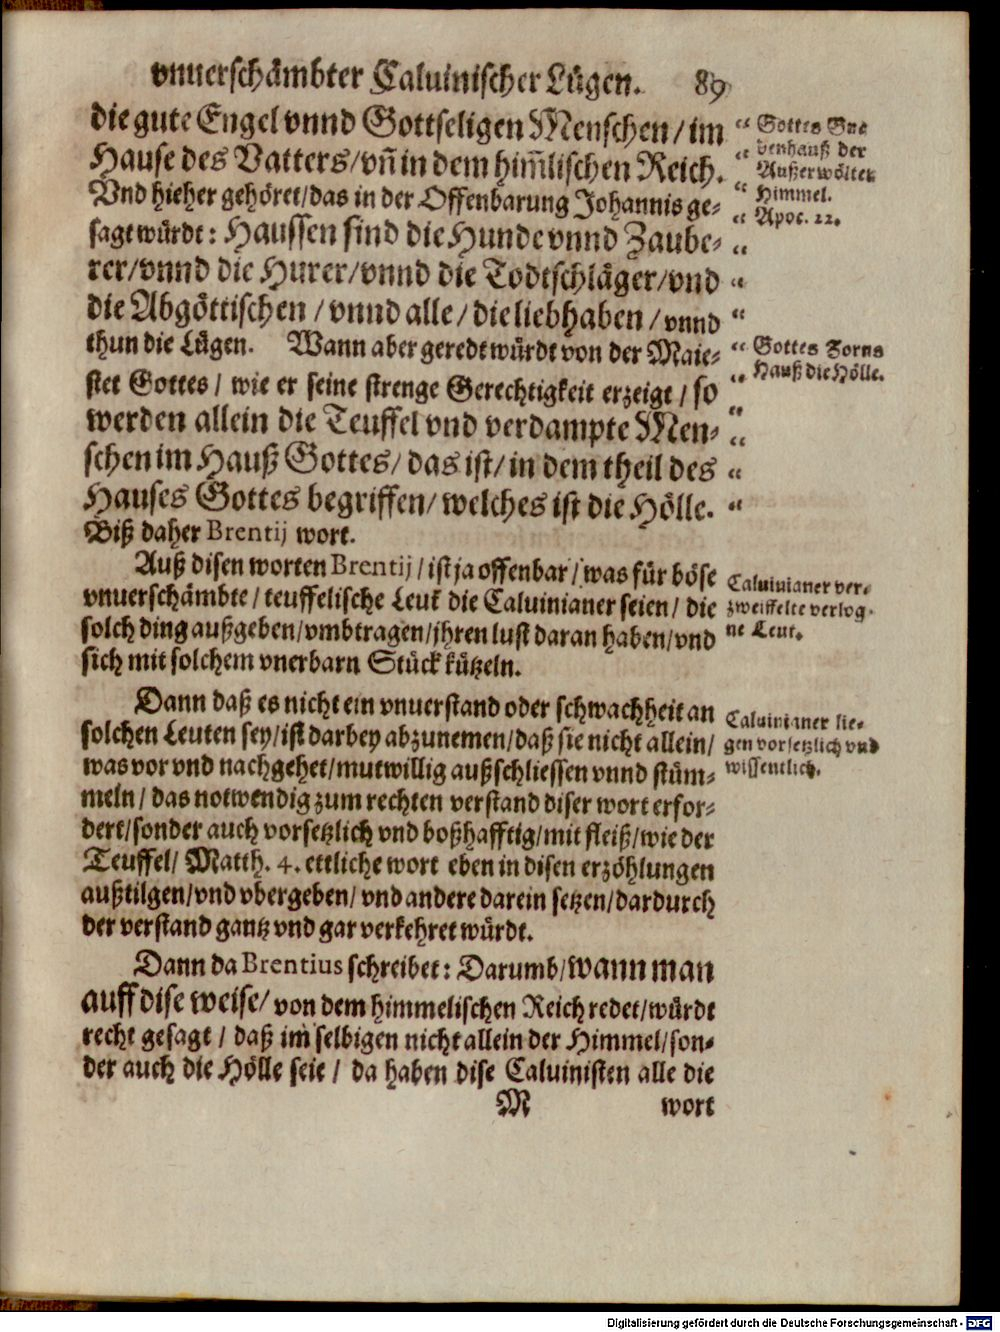 vnuerschämbter Caluinischer Lügen. 89
die gute Engel vnnd Gottseligen Menschen / im
Hause des Vatters / vñ in dem him̃lischen Reich.
Vnd hieher gehöret / das in der Offenbarung Johannis ge-
sagt würdt: Haussen sind die Hunde vnnd Zaube-
rer / vnnd die Hurer / vnnd die Todtschläger / vnd
die Abgöttischen / vnnd alle / die lieb haben / vnnd
thun die Lügen. Wann aber geredt würdt von der Maie-
stet Gottes / wie er seine strenge Gerechtigkeit erzeigt / so
werden allein die Teuffel vnd verdampte Men-
schen im Hauß Gottes / das ist / in dem theil des
Hauses Gottes begriffen / welches ist die Hölle.
Biß daher Brentij wort.
Gottes
der
Außerwölten
Himmel.
Apoc. 22.
Gottes Zorns
Hauß die Hölle.
Auß disen worten Brentij / ist ja offenbar / was für böse
vnuerschämbte / teuffelische Leut die Caluinianer seien / die
solch ding außgeben / vmbtragen / jhren lust daran haben / vnd
sich mit solchem vnerbarn Stück kützeln.
Caluinianer ver-
zweiffelte verlog-
ne Leut.
Dann daß es nicht ein vnuerstand oder schwachheit an
solchen Leuten sey / ist darbey abzunemen / daß sie nicht allein /
was vor vnd nachgehet / mutwillig außschliessen vnnd stüm-
meln / das notwendig zum rechten verstand diser wort erfor-
dert / sonder auch vorsetzlich vnd boßhafftig / mit fleiß / wie der
Teuffel / Matth. 4. ettliche wort eben in disen erzöhlungen
außtilgen / vnd vbergeben / vnd andere darein setzen / dardurch
der verstand gantz vnd gar verkehret würdt.
Caluinianer lie-
gen vorsetzlich vnd
wissentlich.
Dann da Brentius schreibet: Darumb / wann man
auff dise weise / von dem himmelischen Reich redet / würdt
recht gesagt / daß im selbigen nicht allein der Himmel / son-
der auch die Hölle seie / da haben dise Caluinisten alle die
M wort
Digitalisierung gefördert durch die Deutsche Forschungsgemeinschaft - DFG